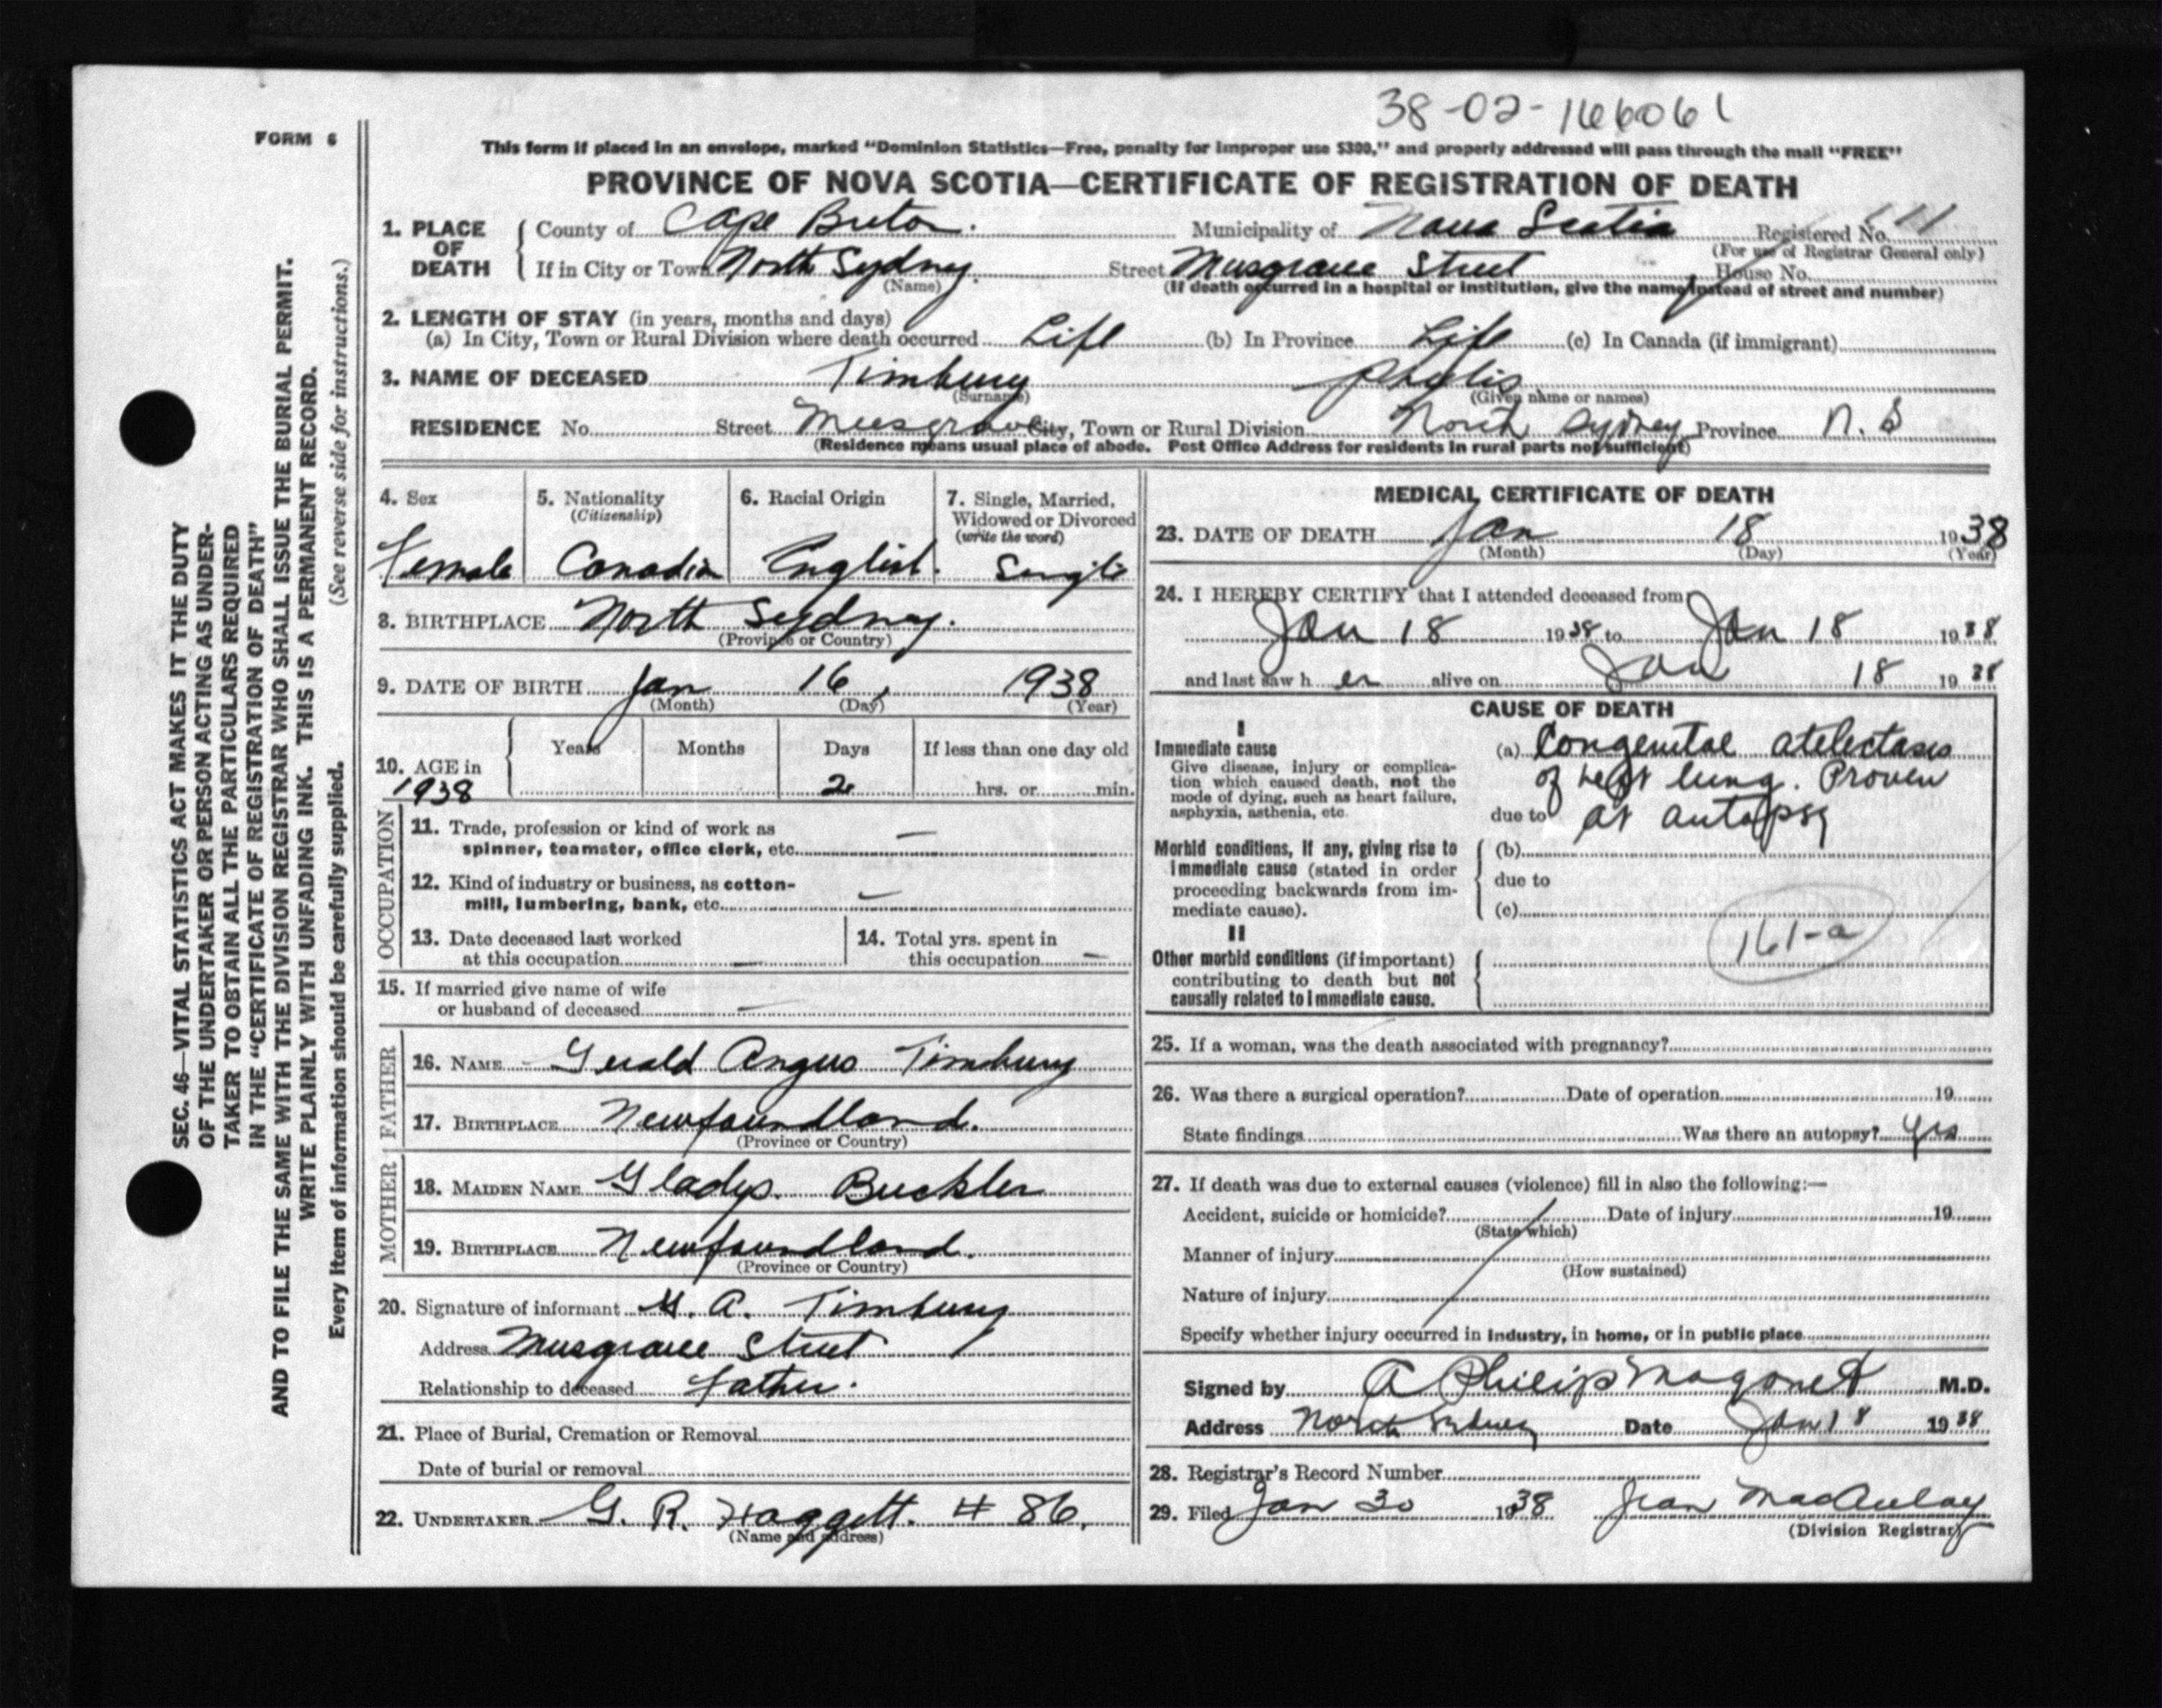 38-02-166061
FORM 6
This form if placed in an envelope, marked "Dominion Statistics—Free, penalty for improper use $300," and properly addressed will pass through the mail "FREE"
PROVINCE OF NOVA SCOTIA—CERTIFICATE OF REGISTRATION OF DEATH
SEC. 46—VITAL STATISTICS ACT MAKES IT THE DUTY
OF THE UNDERTAKER OR PERSON ACTING AS UNDER-
TAKER TO OBTAIN ALL THE PARTICULARS REQUIRED
IN THE "CERTIFICATE OF REGISTRATION OF DEATH"
AND TO FILE THE SAME WITH THE DIVISION REGISTRAR WHO SHALL ISSUE THE BURIAL PERMIT.
WRITE PLAINLY WITH UNFADING INK. THIS IS A PERMANENT RECORD.
Every item of information should be carefully supplied. (See reverse side for instructions.)
1. PLACE OF DEATH County of Cape Breton. Municipality of Nova Scotia Registered No.
(For use of Registrar General only)
If in City or Town North Sydney. Street Musgrave Street House No.
(Name) (If death occurred in a hospital or institution, give the name instead of street and number)
2. LENGTH OF STAY (in years, months and days)
(a) In City, Town or Rural Division where death occurred Life (b) In Province Life (c) In Canada (if immigrant)
3. NAME OF DECEASED Timbury Phylis
(Surname) (Given name or names)
RESIDENCE No. Street Musgrave City, Town or Rural Division North Sydney Province N. S
(Residence means usual place of abode. Post Office Address for residents in rural parts not sufficient)
4. Sex 5. Nationality (Citizenship) 6. Racial Origin 7. Single, Married, Widowed or Divorced (write the word)
Female Canadian English. Single
8. BIRTHPLACE North Sydney.
(Province or Country)
9. DATE OF BIRTH Jan 16, 1938
(Month) (Day) (Year)
10. AGE in 1938 Years Months Days If less than one day old
2 hrs. or min.
OCCUPATION
11. Trade, profession or kind of work as
spinner, teamster, office clerk, etc. —
12. Kind of industry or business, as cotton-
mill, lumbering, bank, etc. —
13. Date deceased last worked
at this occupation —
14. Total yrs. spent in
this occupation —
15. If married give name of wife
or husband of deceased —
FATHER
16. NAME Gerald Angus Timbury
17. BIRTHPLACE Newfoundland.
(Province or Country)
MOTHER
18. MAIDEN NAME Gladys. Buckler
19. BIRTHPLACE Newfoundland.
(Province or Country)
20. Signature of informant G. A. Timbury
Address Musgrave Street
Relationship to deceased Father.
21. Place of Burial, Cremation or Removal
Date of burial or removal
22. UNDERTAKER G. R. Haggett. # 86.
(Name and address)
MEDICAL CERTIFICATE OF DEATH
23. DATE OF DEATH Jan 18 1938
(Month) (Day) (Year)
24. I HEREBY CERTIFY that I attended deceased from
Jan 18 1938 to Jan 18 1938
and last saw her alive on Jan 18 1938
CAUSE OF DEATH
I
Immediate cause
Give disease, injury or complica-
tion which caused death, not the
mode of dying, such as heart failure,
asphyxia, asthenia, etc.
(a) Congenital atelectasis
of left lung. Proven
due to at autopsy
Morbid conditions, if any, giving rise to
immediate cause (stated in order
proceeding backwards from im-
mediate cause).
(b)
due to
(c)
161-a
II
Other morbid conditions (if important)
contributing to death but not
causally related to immediate cause.
25. If a woman, was the death associated with pregnancy?
26. Was there a surgical operation? Date of operation 19
State findings Was there an autopsy? Yes
27. If death was due to external causes (violence) fill in also the following:—
Accident, suicide or homicide? Date of injury 19
(State which)
Manner of injury
(How sustained)
Nature of injury
Specify whether injury occurred in industry, in home, or in public place
Signed by A Philip Magonet M.D.
Address North Sydney Date Jan 18 1938
28. Registrar's Record Number
29. Filed Jan 30 1938 Jean MacAulay
(Division Registrar)